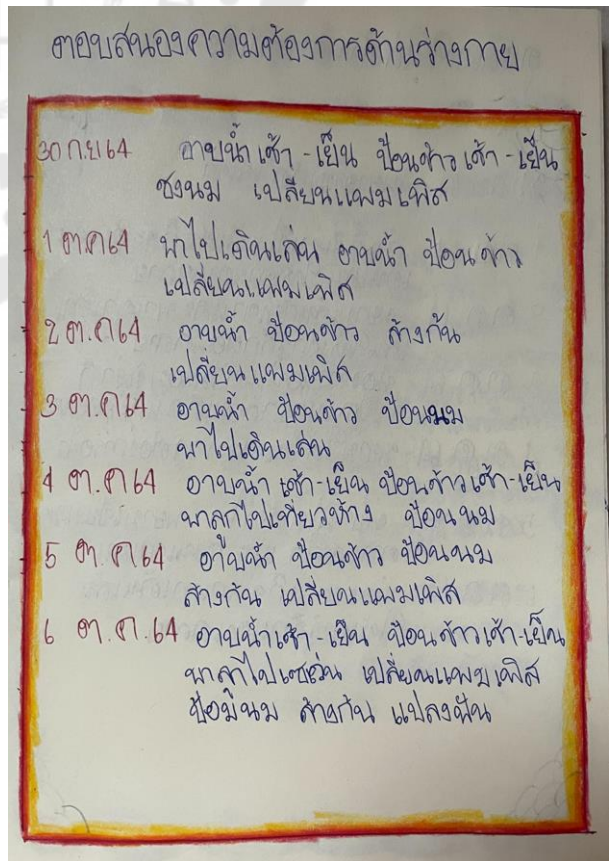 ตอบสนองความต้องการด้านร่างกาย
30 ก.ย 64 อาบน้ำ เช้า - เย็น ป้อนข้าว เช้า - เย็น
ชงนม เปลี่ยนแพมเพิส
1 ต.ค 64 พาไปเดินเล่น อาบน้ำ ป้อนข้าว
เปลี่ยนแพมเพิส
2 ต.ค 64 อาบน้ำ ป้อนข้าว ล้างก้น
เปลี่ยนแพมเพิส
3 ต.ค 64 อาบน้ำ ป้อนข้าว ป้อนนม
พาไปเดินเล่น
4 ต.ค 64 อาบน้ำ เช้า-เย็น ป้อนข้าว เช้า-เย็น
พาลูกไปเที่ยวห้าง ป้อนนม
5 ต.ค 64 อาบน้ำ ป้อนข้าว ป้อนนม
ล้างก้น เปลี่ยนแพมเพิส
6 ต.ค. 64 อาบน้ำเช้า - เย็น ป้อนข้าวเช้า-เย็น
เปลี่ยนแพมเพิส
ป้อนนม ล้างก้น แปลงฟัน